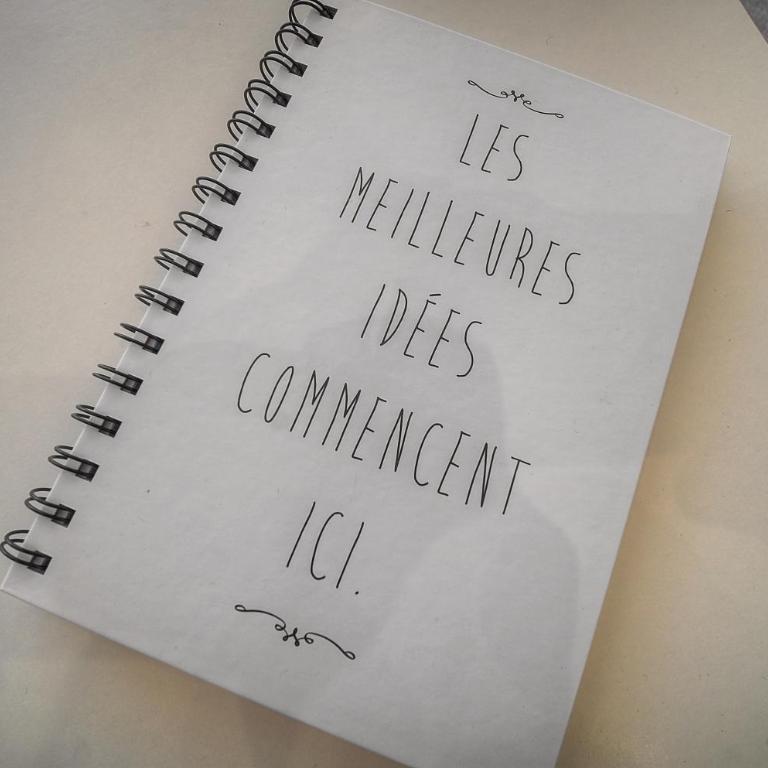 LES
MEILLEURES
IDÉES
COMMENCENT
ICI.